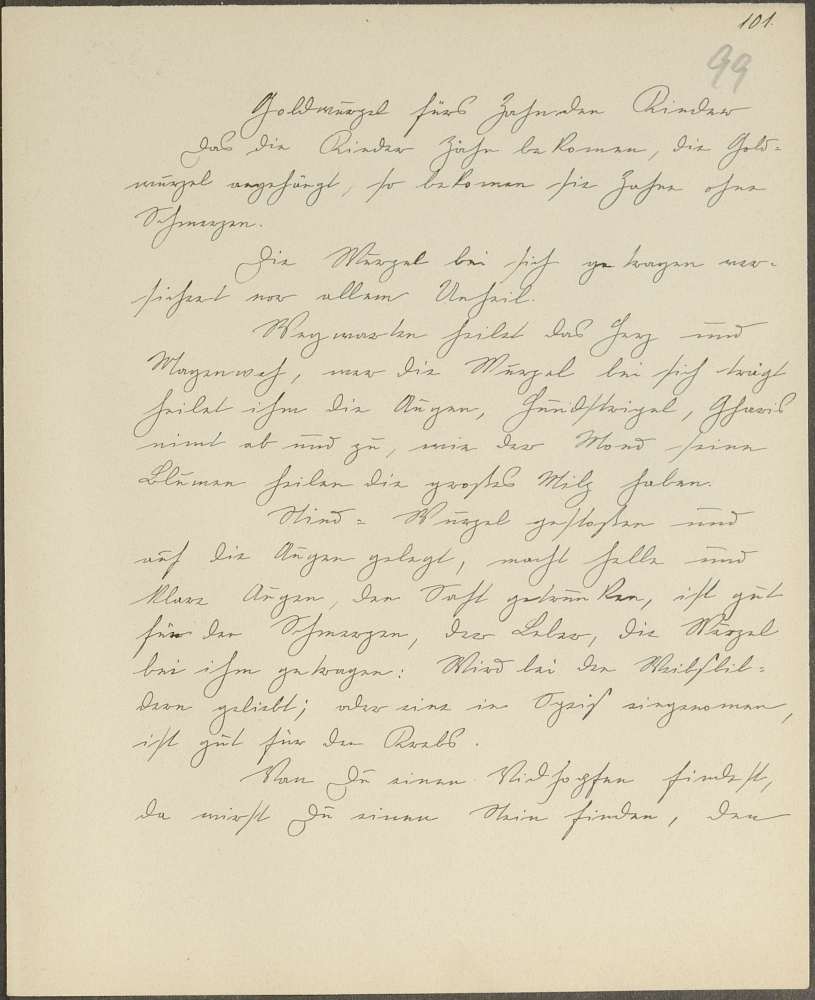 101.
99
Goldwurzel fürs Zahn den Kinder
Das die Kinder Zähn bekomen, die Gold-
wurzel angehängt, so bekomen sie Zähne ohne
Schmerzen.
Die Wurzel bei sich getragen ver-
sichert vor allem Unheil.
Wegwarten heilet das Herz und
Magenweh, wer die Wurzel bei sich trägt
heilet ihm die Augen,
nimt ab und zu, wie der Mond seine
Blumen heilen die großes Milz haben.
Wurzel gestoßen und
auf die Augen gelegt, macht helle und
klare Augen, den Saft getrunken, ist gut
für den Schmerzen, der Leber, die Wurzel
bei ihm getragen: Wird bei den Weibsbil-
dern geliebt; oder eine in Speiß eingenomen,
ist gut für den Krebs.
Van Du einen Widhopfen findest,
da wirst Du einen Stein finden, den